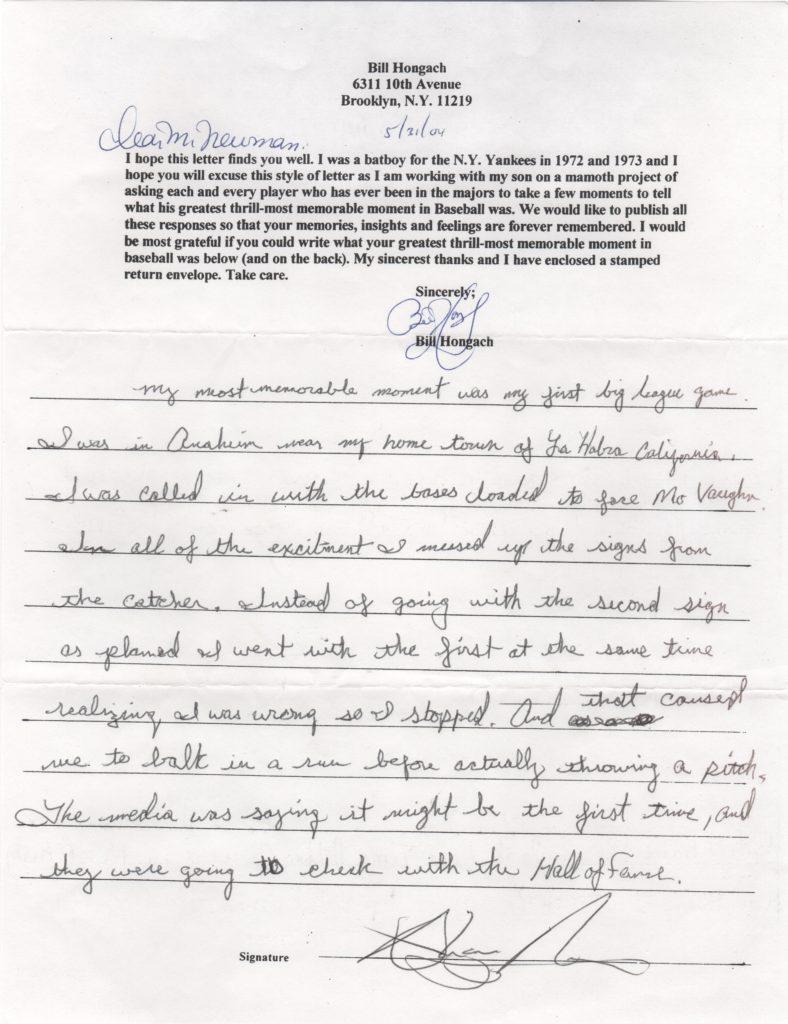 Bill Hongach
6311 10th Avenue
Brooklyn, N.Y. 11219
5/21/04
Dear Mr Newman.
I hope this letter finds you well. I was a batboy for the N.Y. Yankees in 1972 and 1973 and I
hope you will excuse this style of letter as I am working with my son on a mamoth project of
asking each and every player who has ever been in the majors to take a few moments to tell
what his greatest thrill-most memorable moment in Baseball was. We would like to publish all
these responses so that your memories, insights and feelings are forever remembered. I would
be most grateful if you could write what your greatest thrill-most memorable moment in
baseball was below (and on the back). My sincerest thanks and I have enclosed a stamped
return envelope. Take care.
Sincerely;
Bill Hongach
My most memorable moment was my first big league game.
I was in Anaheim near my home town of La Habra California.
I was called in with the bases loaded to face Mo Vaughn.
In all of the excitment I messed up the signs from
the catcher. Instead of going with the second sign
as planned I went with the first at the same time
realizing I was wrong so I stopped. And that caused
me to balk in a run before actually throwing a pitch.
The media was saying it might be the first time, and
they were going to check with the Hall of Fame.
Signature